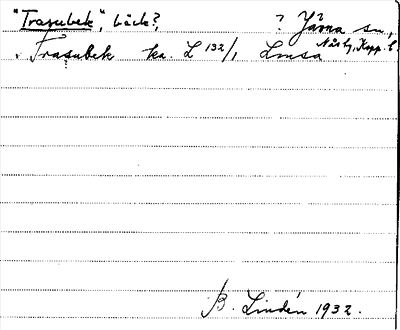 "Trasubek", bäck? ? Järna sn,
Nås tg, Kopp. l.
Trasubek ka. L 132/1 Lmsa
B. Lindén 1932.